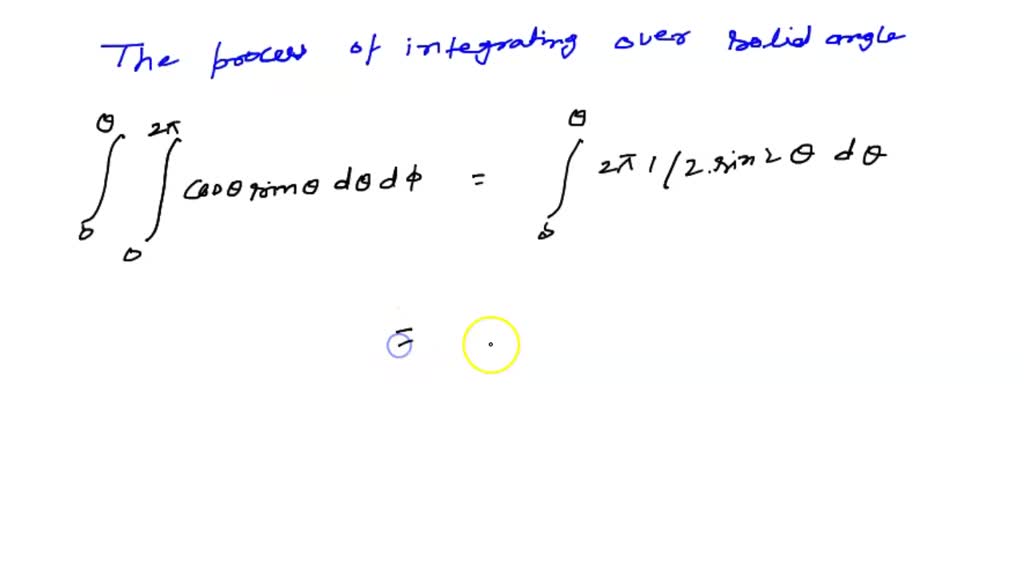 The process of integrating over solid angle
∫₀^θ ∫₀^2π cosθ sinθ dθ dϕ = ∫₀^θ 2π 1/2.sin2θ dθ
=